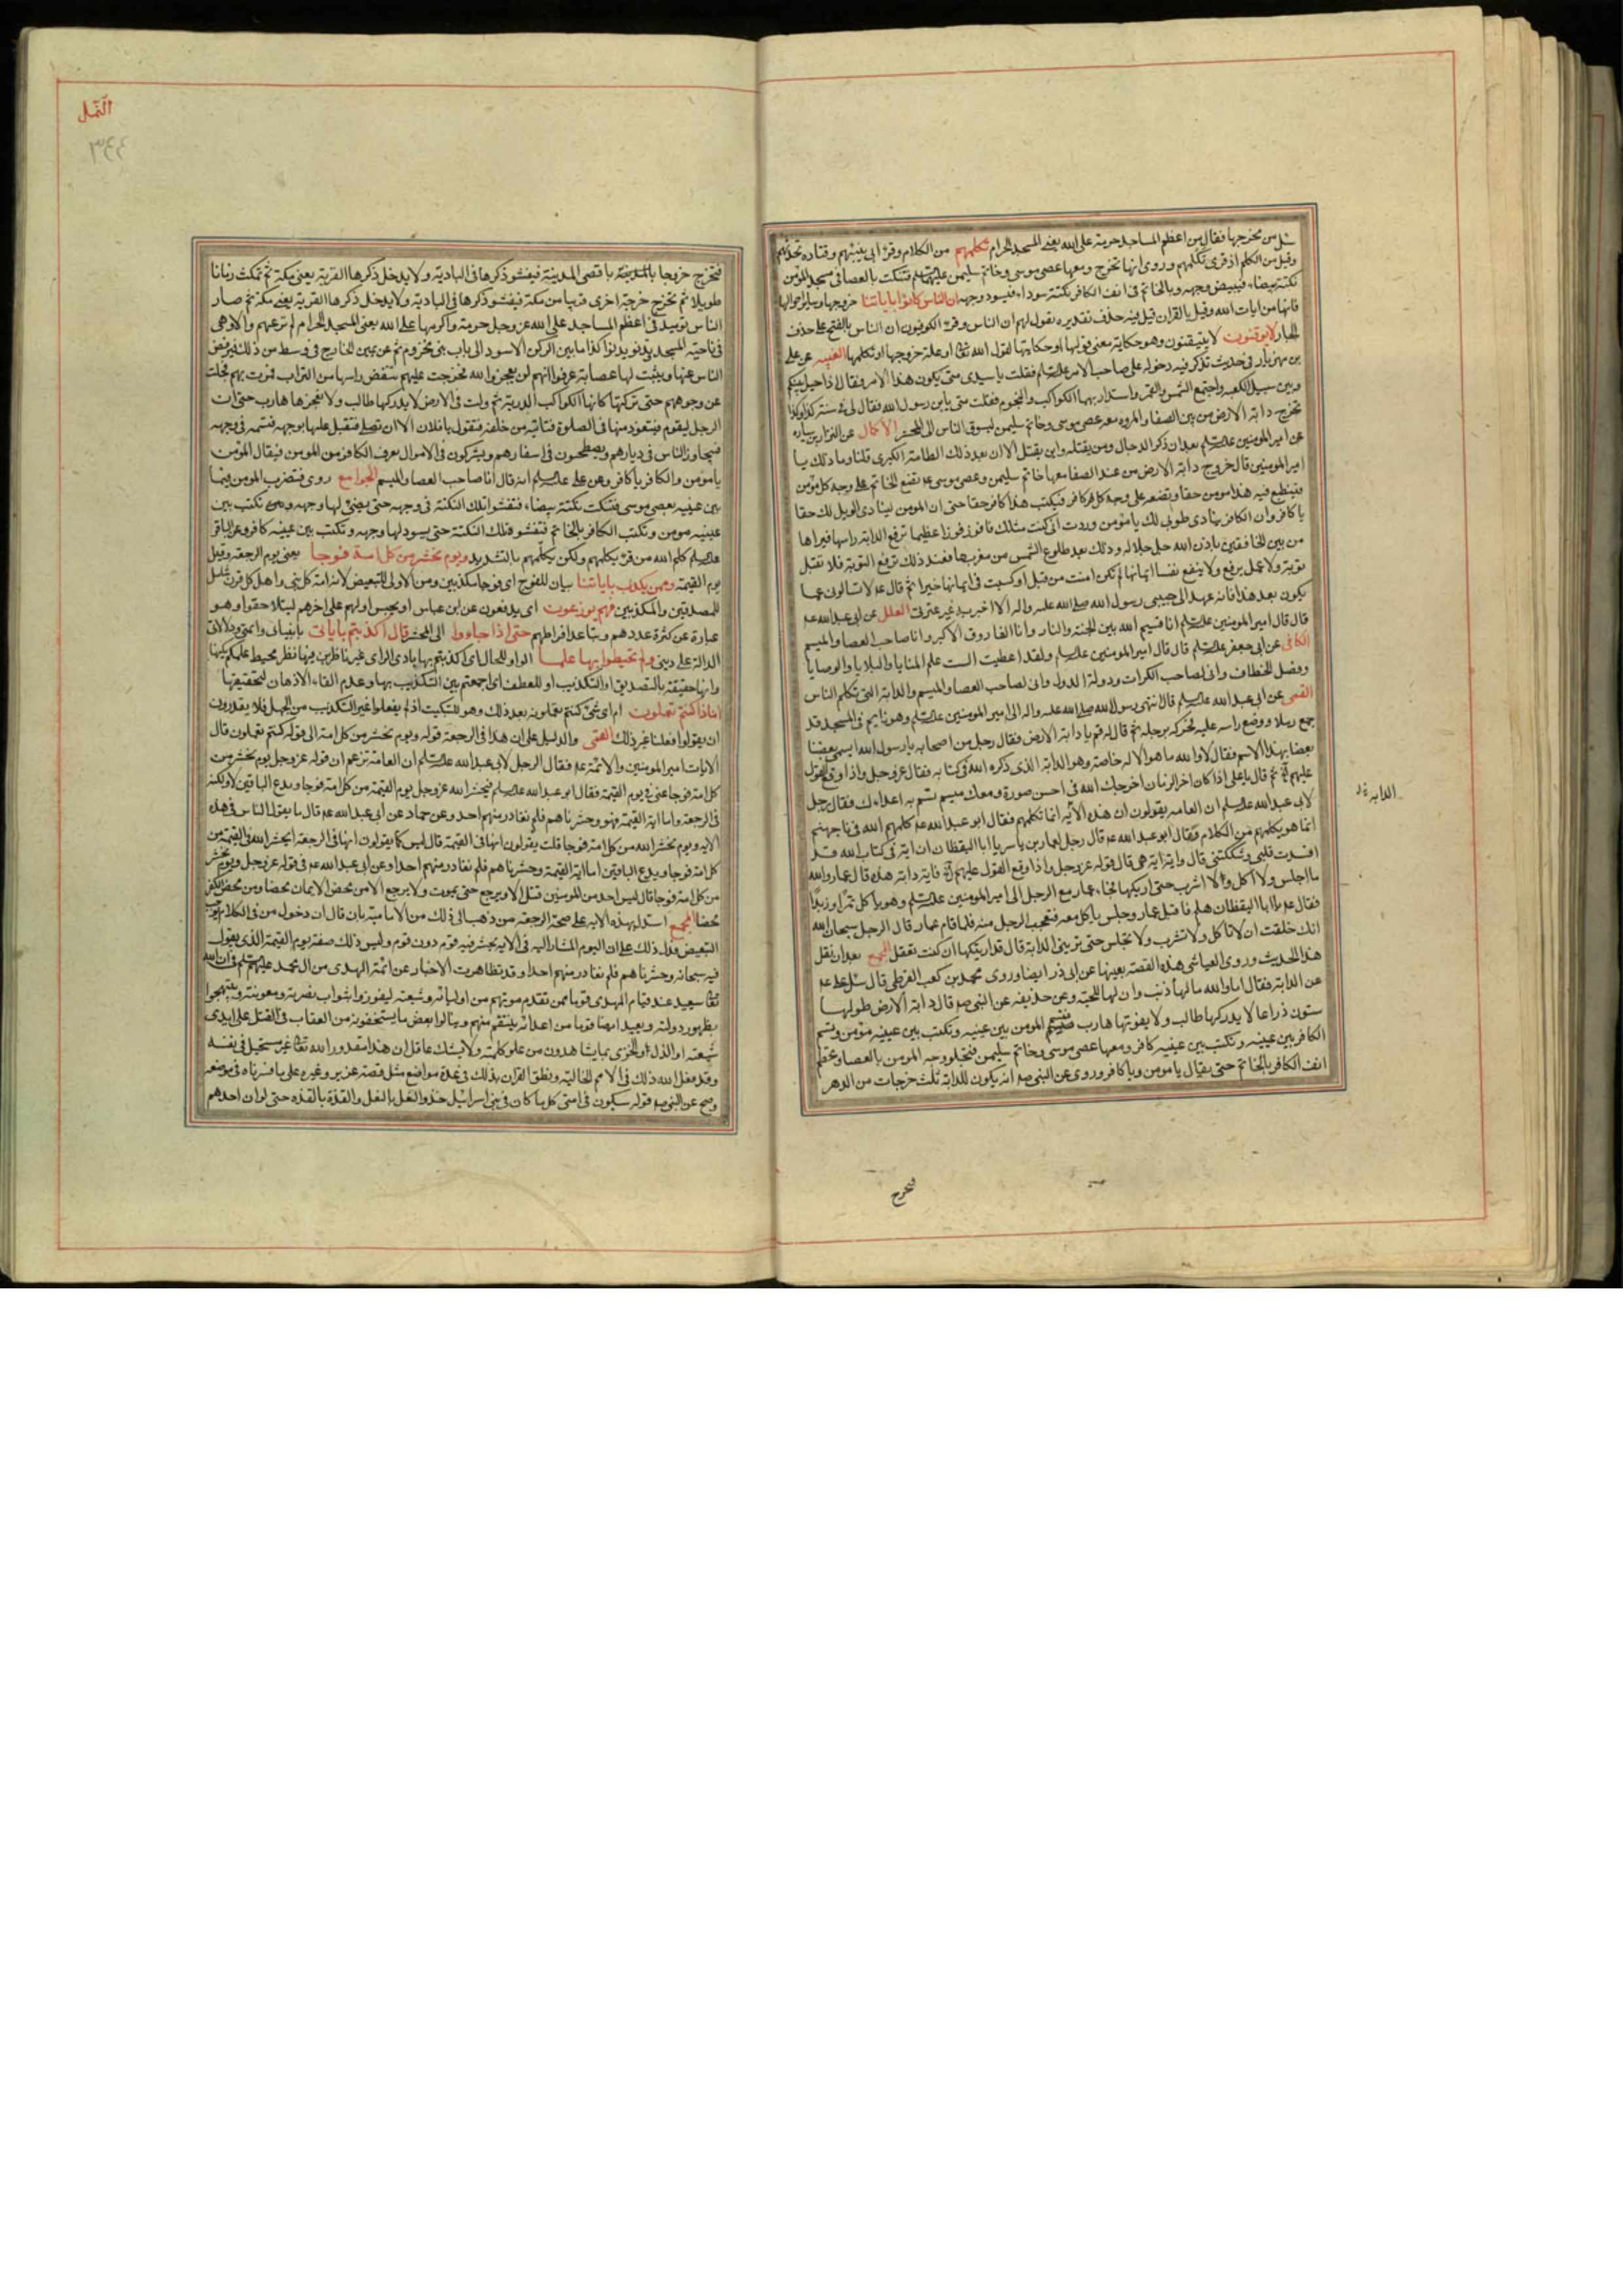 سئل من مخرجها فقال من اعظم المساجد حرمة على الله يعنى المسجد الحرام تكلمهم من الكلام وقرئ ابى ينبئهم وقتاده تحدثهم
وقيل من الكلم اذ قرئ تكلمهم وروى انها تخرج ومعها عصى موسى وخاتم سليمن عليهما فتنكت بالعصا فى مسجد المؤمن
نكتة بيضاء فيبيض وجهه وبالخاتم فى انف الكافر نكتة سوداء فيسود وجهه ان الناس كانوا باياتنا خروجها وساير احوالها
فانها من ايات الله وقيل بالقران قيل فيه حذف تقديره تقول لهم ان الناس وقرئ الكوفيون ان الناس بالفتح على حذف
الجار لايوقنون لا يتيقنون وهو حكاية معنى قولها او حكايتها لقول الله تعا او علة خروجها او تكلمها الغيبه عن على
بن مهزيار فى حديث تذكر فيه دخوله على صاحب الامر فقلت يا سيدى متى يكون هذا الامر فقال اذا حيل بينكم
وبين سبيل الكعبه واجتمع الشمس والقمر واستدار بهما الكواكب والنجوم فقلت متى يابن رسول الله فقال لى فى سنة كذا وكذا
تخرج دابة الارض من بين الصفا والمروه معه عصى موسى وخاتم سليمن ليسوق الناس الى المحشر الاكمال عن النزال بن سياره
عن امير المومنين بعد ان ذكر الدجال ومن يقتله واين يقتل الا ان بعد ذلك الطامة الكبرى قلنا وما ذلك يا
امير المومنين قال خروج دابة الارض من عند الصفا معها خاتم سليمن وعصى موسى تضع الخاتم على وجه كل مؤمن
فينطبع فيه هذا مومن حقا وتضعه على وجه كل كافر فيكتب هذا كافر حقا حتى ان المومن لينادى الويل لك حقا
يا كافر وان الكافر ينادى طوبى لك يا مومن وددت انى كنت مثلك فافوز فوزا عظيما ثم ترفع الدابة راسها فيراها
من بين الخافقين باذن الله جل جلاله وذلك بعد طلوع الشمس من مغربها فعند ذلك ترفع التوبة فلا تقبل
توبة ولا عمل يرفع ولا ينفع نفسا ايمانها لم تكن امنت من قبل او كسبت فى ايمانها خيرا ثم قال لا تسالون عما
يكون بعد هذا فانه عهد الى حبيبى رسول الله صلى الله عليه واله الا اخبر به غير عترتى العلل عن ابى عبد الله
قال قال امير المومنين انا قسيم الله بين الجنة والنار وانا الفاروق الاكبر وانا صاحب العصا والميسم
الكافى عن ابى جعفر قال قال امير المومنين ولقد اعطيت الست علم المنايا والبلايا والوصايا
وفصل الخطاف وانى لصاحب الكرات ودولة الدول وانى لصاحب العصا والميسم والدابة التى تكلم الناس
القمى عن ابى عبد الله قال انتهى رسول الله صلى الله عليه واله الى امير المومنين وهو نايم فى المسجد قد
جمع رملا ووضع راسه عليه فحركه برجله ثم قال له قم يا دابة الارض فقال رجل من اصحابه يا رسول الله ايسمى بعضنا
بعضا بهذا الاسم فقال لا والله ما هو الا له خاصة وهو الدابة الذى ذكره الله فى كتابه فقال عز وجل واذا وقع القول
عليهم ثم قال يا على اذا كان اخر الزمان اخرجك الله فى احسن صورة ومعك ميسم تسم به اعداءك فقال رجل
لابى عبد الله ان العامه يقولون ان هذه الآيه انما تكلمهم فقال ابو عبد الله كلمهم الله فى نار جهنم
انما هو يكلمهم من الكلام فقال ابو عبد الله قال رجل لعمار بن ياسر يا ابا اليقظان ان اية فى كتاب الله قد
افسدت قلبى وشككتنى قال واية اية هى قال قوله عز وجل واذا وقع القول عليهم فاية دابة هذه قال عمار والله
ما اجلس ولا اكل ولا اشرب حتى اريكها فجاء عمار مع الرجل الى امير المومنين وهو ياكل تمرا وزبدا
فقال يا ابا اليقظان هلم فاقبل عمار وجلس ياكل معه فتعجب الرجل منه فلما قام عمار قال الرجل سبحان الله
انك حلفت ان لا تاكل ولا تشرب ولا تجلس حتى ترينى الدابة قال قد اريتكها ان كنت تعقل المجمع بعد ان نقل
هذا الحديث وروى العياشى هذه القصة بعينها عن ابى ذر ايضا وروى محمد بن كعب القرظى قال سئل على
عن الدابة فقال اما والله ما لها ذنب وان لها للحية وعن حذيفه عن النبى قال دابة الارض طولها
ستون ذراعا لا يدركها طالب ولا يفوتها هارب فتسم المومن بين عينيه وتكتب بين عينيه مؤمن وتسم
الكافر بين عينيه وتكتب بين عينيه كافر ومعها عصى موسى وخاتم سليمن فتجلو وجه المومن بالعصا وتخطم
انف الكافر بالخاتم حتى يقال يا مومن ويا كافر وروى عن النبى انه يكون للدابة ثلث خرجات من الدهر
فتخرج
النمل
٣٤٤
فتخرج خروجا باقصى المدينة فيفشو ذكرها فى البادية ولا يدخل ذكرها القرية يعنى مكة ثم تمكث زمانا
طويلا ثم تخرج خرجة اخرى قريبا من مكة فيفشو ذكرها فى البادية ولا يدخل ذكرها القرية يعنى مكة ثم صار
الناس يوما فى اعظم المساجد على الله عز وجل حرمة واكرمها على الله يعنى المسجد الحرام لم ترعهم الا وهى
فى ناحية المسجد تدنو وتدنو كذا ما بين الركن الاسود الى باب بنى مخزوم عن يمين الخارج فى وسط من ذلك فيرفض
الناس عنها ويثبت لها عصابة عرفوا انهم لن يعجزوا الله فخرجت عليهم تنفض راسها من التراب فمرت بهم فجلت
عن وجوههم حتى تركتها كانها الكواكب الدرية ثم ولت فى الارض لا يدركها طالب ولا يعجزها هارب حتى ان
الرجل ليقوم فيتعوذ منها فى الصلوة فتاتيه من خلفه فتقول يا فلان الان تصلى فتقبل عليها بوجهه فتسمه فى وجهه
فيتجاوز الناس فى ديارهم ويصطحبون فى اسفارهم ويشتركون فى الاموال يعرف الكافر من المومن فيقال للمؤمن
يا مؤمن والكافر يا كافر وعن على انه قال انا صاحب العصا والميسم الجوامع روى فتضرب المومن فيما
بين عينيه بعصى موسى فتنكت نكتة بيضاء فتفشو تلك النكتة فى وجهه حتى يضئ لها وجهه وتكتب بين
عينيه مومن وتنكت الكافر بالخاتم فتفشو تلك النكتة حتى يسود لها وجهه وتكتب بين عينيه كافر وعن الباقر
كلم الله من قرئ يكلمهم ولكن يكلمهم بالتشديد ويوم نحشر من كل امة فوجا يعنى يوم الرجعة وقيل
يوم القيمة وممن يكذب باياتنا بيان للفوج اى فوجا مكذبين ومن الاولى للتبعيض لان امة كل نبى واهل كل قرن شامل
للمصدقين والمكذبين فهم يوزعون اى يدفعون عن ابن عباس او يحبس اولهم على اخرهم ليتلاحقوا وهو
عبارة عن كثرة عددهم وتباعد اطرافهم حتى اذا جاووا الى المحشر قال اكذبتم باياتى بانبيائى وائمتى ودلالاتى
الدالة على دينى ولم تحيطوا بها علما الواو للحال اى اكذبتم بها بادى الراى غير ناظرين فيها نظر محيط علمكم بكنهها
وانها حقيقة بالتصديق او التكذيب او للعطف اى اجمعتم بين التكذيب بها وعدم القاء الاذهان لتحقيقها
اماذا كنتم تعملون ام اى شئ كنتم تعملونه بعد ذلك وهو للتبكيت اذ لم يفعلوا غير التكذيب من الجهل فلا يقدرون
ان يقولوا فعلنا غير ذلك القمى والدليل على ان هذا فى الرجعة قوله ويوم نحشر من كل امة الى قوله كنتم تعملون قال
الايات امير المومنين والائمة فقال الرجل لابى عبد الله ان العامة تزعم ان قوله عز وجل يوم نحشر من
كل امة فوجا عنى فى يوم القيمة فقال ابو عبد الله فيحشر الله عز وجل يوم القيمة من كل امة فوجا ويدع الباقين لا ولكنه
فى الرجعة واما اية القيمة فهو وحشرناهم فلم نغادر منهم احد وعن حماد عن ابى عبد الله قال ما يقول الناس فى هذه
الاية ويوم نحشر الله من كل امة فوجا قلت يقولون انها فى القيمة قال ليس كما يقولون انها فى الرجعة ايحشر الله فى القيمة من
كل امة فوجا ويدع الباقين انما اية القيمة وحشرناهم فلم نغادر منهم احدا وعن ابى عبد الله فى قوله عز وجل ويوم نحشر
من كل امة فوجا قال ليس احد من المومنين قتل الا ويرجع حتى يموت ولا يرجع الا من محض الايمان محضا ومن محض الكفر
محضا المجمع استدل بهذه الاية على صحة الرجعة من ذهب الى ذلك من الامامية بان قال ان دخول من فى الكلام يوجب
التبعيض فدل ذلك على ان اليوم المشار اليه فى الاية يحشر فيه قوم دون قوم وليس ذلك صفة يوم القيمة الذى يقول
فيه سبحانه وحشرناهم فلم نغادر منهم احدا وقد تظاهرت الاخبار عن ائمة الهدى من ال محمد فى ان الله
تعا سيعيد عند قيام المهدى قوما ممن تقدم موتهم من اوليائه وشيعته ليفوزوا بثواب نصرته ومعونته ويبتهجوا
بظهور دولته ويعيد ايضا قوما من اعدائه لينتقم منهم وينالوا بعض ما يستحقونه من العقاب فى القتل على ايدى
شيعته او الذل والخزى بما يشاهدون من علو كلمته ولا يشك عاقل ان هذا مقدور الله تعا غير مستحيل فى نفسه
وقد فعل الله ذلك فى الامم الخالية ونطق القران بذلك فى عدة مواضع مثل قصة عزير وغيره على ما فسرناه فى موضعه
وصح عن النبى قوله سيكون فى امتى كل ما كان فى بنى اسرائيل حذو النعل بالنعل والقذة بالقذه حتى لو ان احدهم